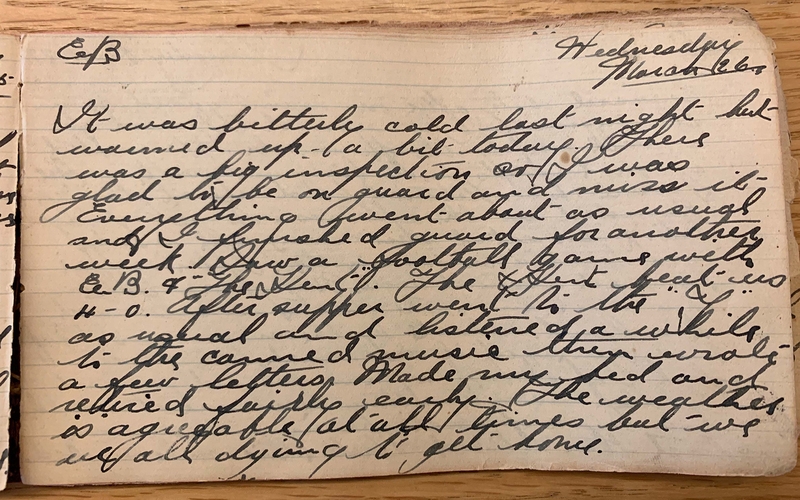 E.B
Wednesday
March 26.
It was bitterly cold last night but
warmed up a bit today. There
was a big inspection so I was
glad to be on guard and miss it.
Everything went about as usual
and I finished guard for another
week. Saw a football game with
E.B. & "The Kent". The Kent beat us
4-0. After supper went to the "Y"
as usual and listened a while
to the canned music then wrote
a few letters. Made my bed and
retired fairly early. The weather
is agreable at all times but we
are all dying to get home.